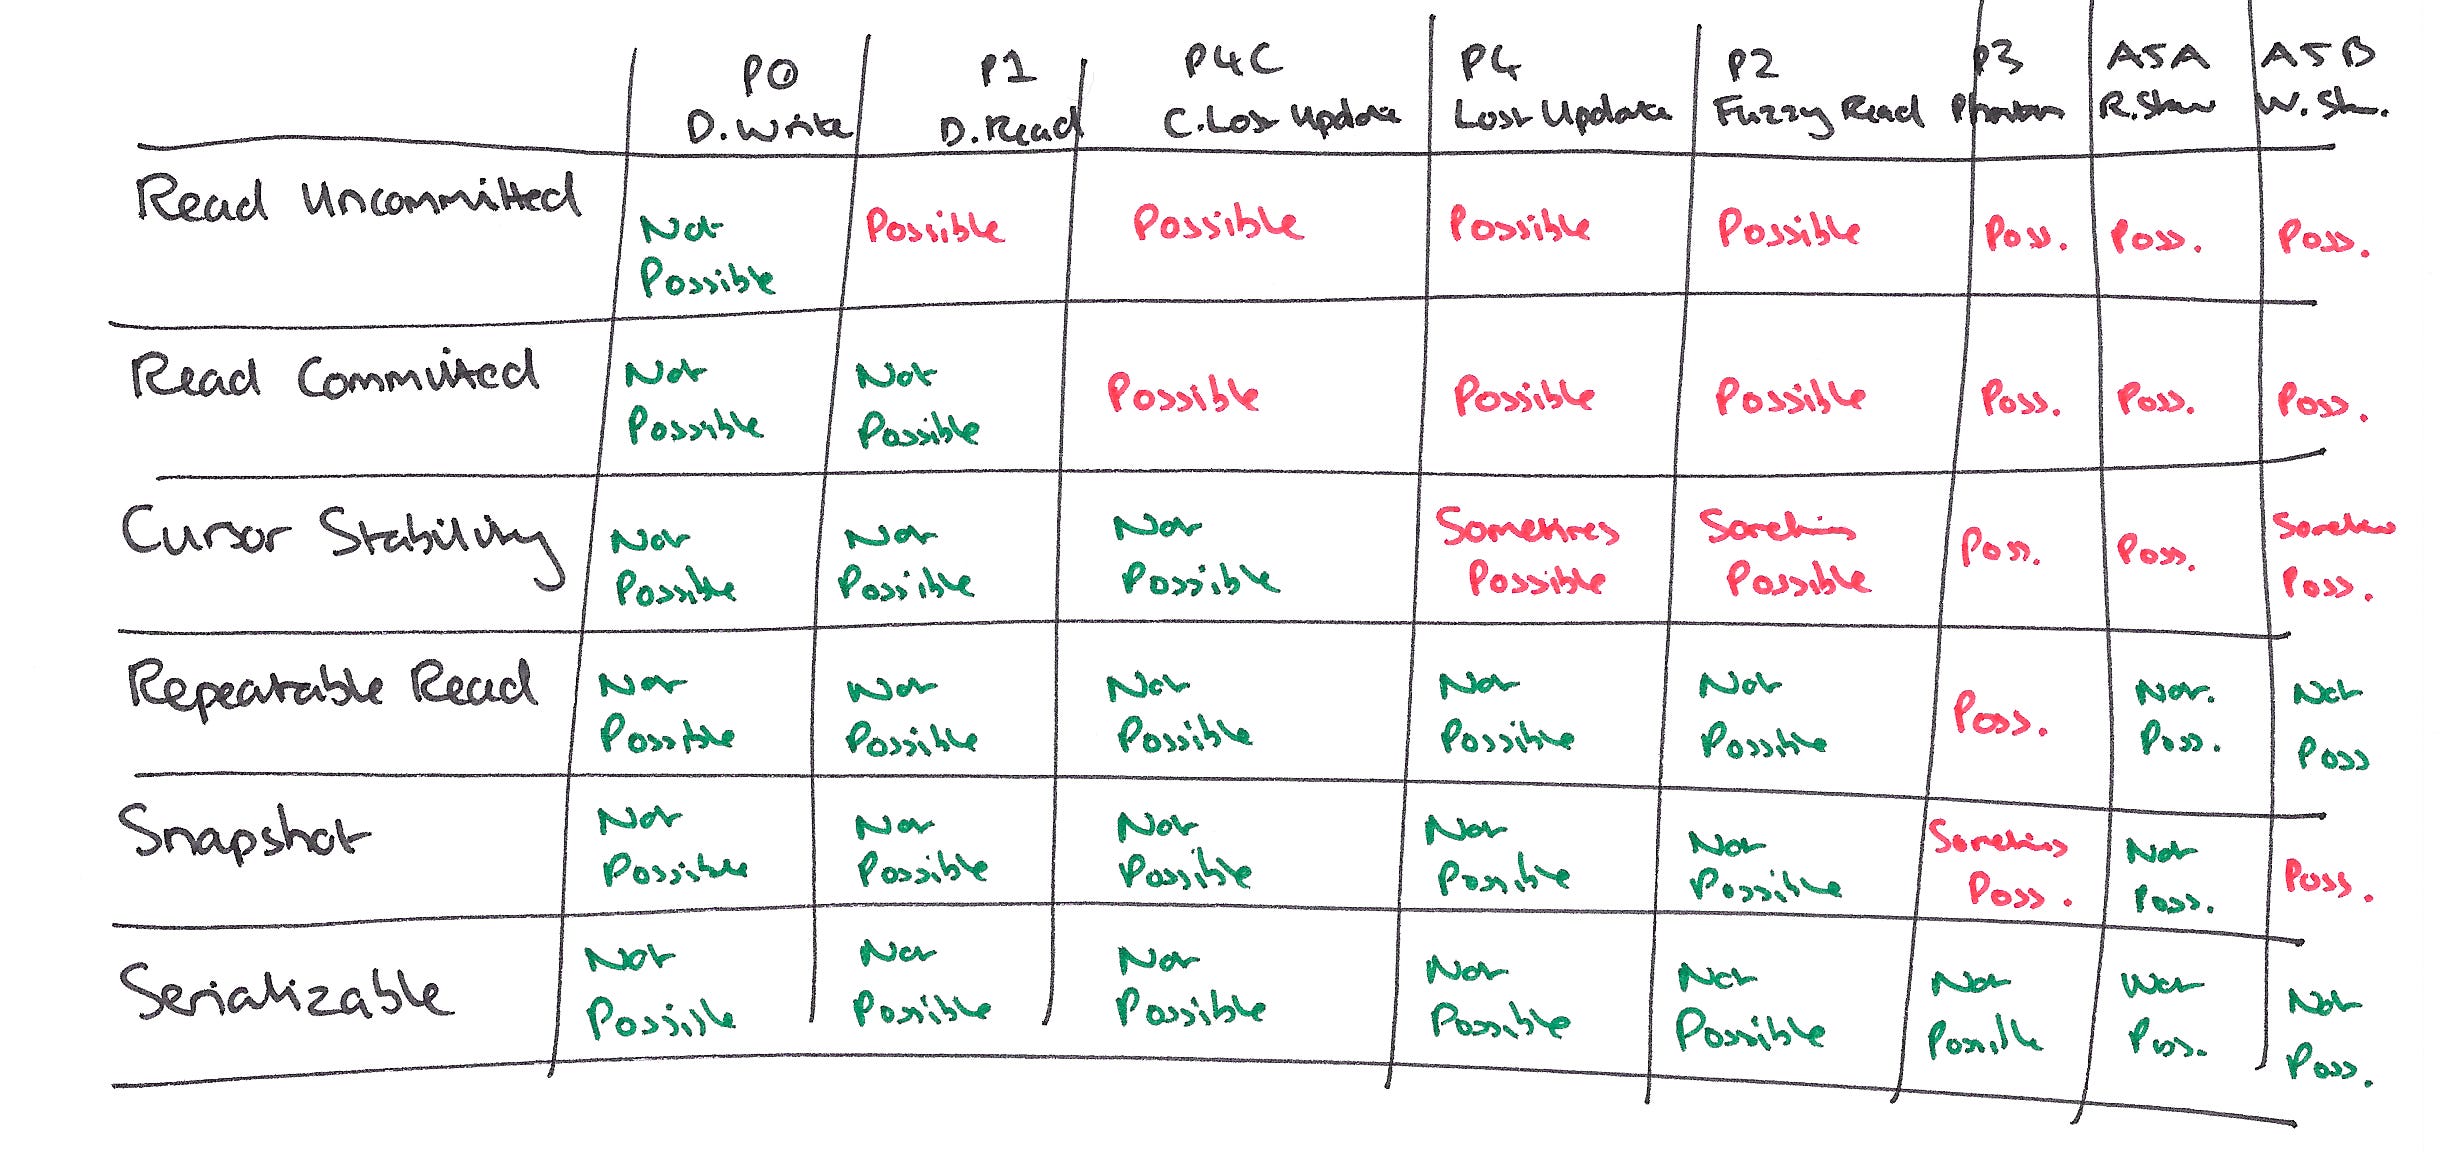 P0
D. Write
P1
D. Read
P4C
C. Lost Update
P4
Lost Update
P2
Fuzzy Read
P3
Phantom
A5A
R. Skew
A5B
W. Sk.
Read Uncommitted
Not
Possible
Possible
Possible
Possible
Possible
Poss.
Poss.
Poss.
Read Committed
Not
Possible
Not
Possible
Possible
Possible
Possible
Poss.
Poss.
Poss.
Cursor Stability
Not
Possible
Not
Possible
Not
Possible
Sometimes
Possible
Sometimes
Possible
Poss.
Poss.
Sometimes
Poss.
Repeatable Read
Not
Possible
Not
Possible
Not
Possible
Not
Possible
Not
Possible
Poss.
Not.
Poss.
Not
Poss
Snapshot
Not
Possible
Not
Possible
Not
Possible
Not
Possible
Not
Possible
Sometimes
Poss.
Not
Poss.
Poss.
Serializable
Not
Possible
Not
Possible
Not
Possible
Not
Possible
Not
Possible
Not
Possible
Not
Poss.
Not
Poss.